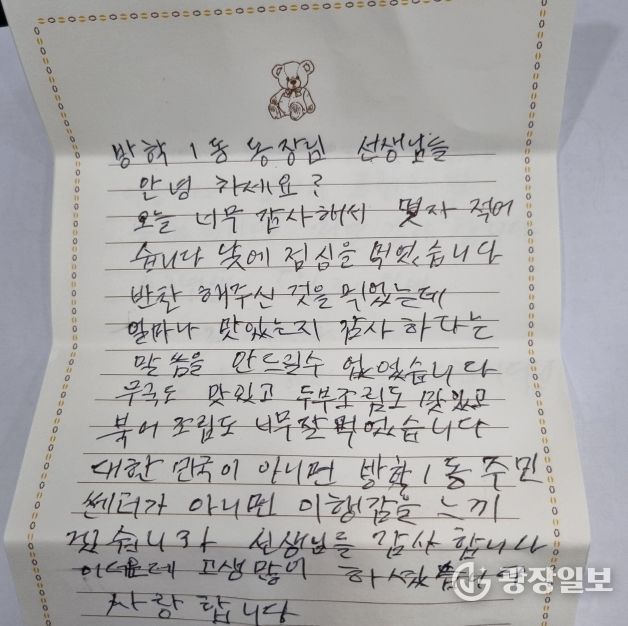 방학 1동 동장님 선생님들
안녕 하세요?
오늘 너무 감사해서 몇자 적어
습니다 낮에 점심을 먹었습니다
반찬 해주신 것을 먹었는데
얼마나 맛있는지 감사 하다는
말씀을 안드릴수 없었습니다
무국도 맛있고 두부조림도 맛있고
북어 조림도 너무잘 먹었습니다
대한 민국이 아니면 방학1동 주민
쎈터가 아니면 이행감을 느끼
겠습니까 선생님들 감사 합니다
더운데 고생많이 하셨습니다
사랑 합니다
광장일보